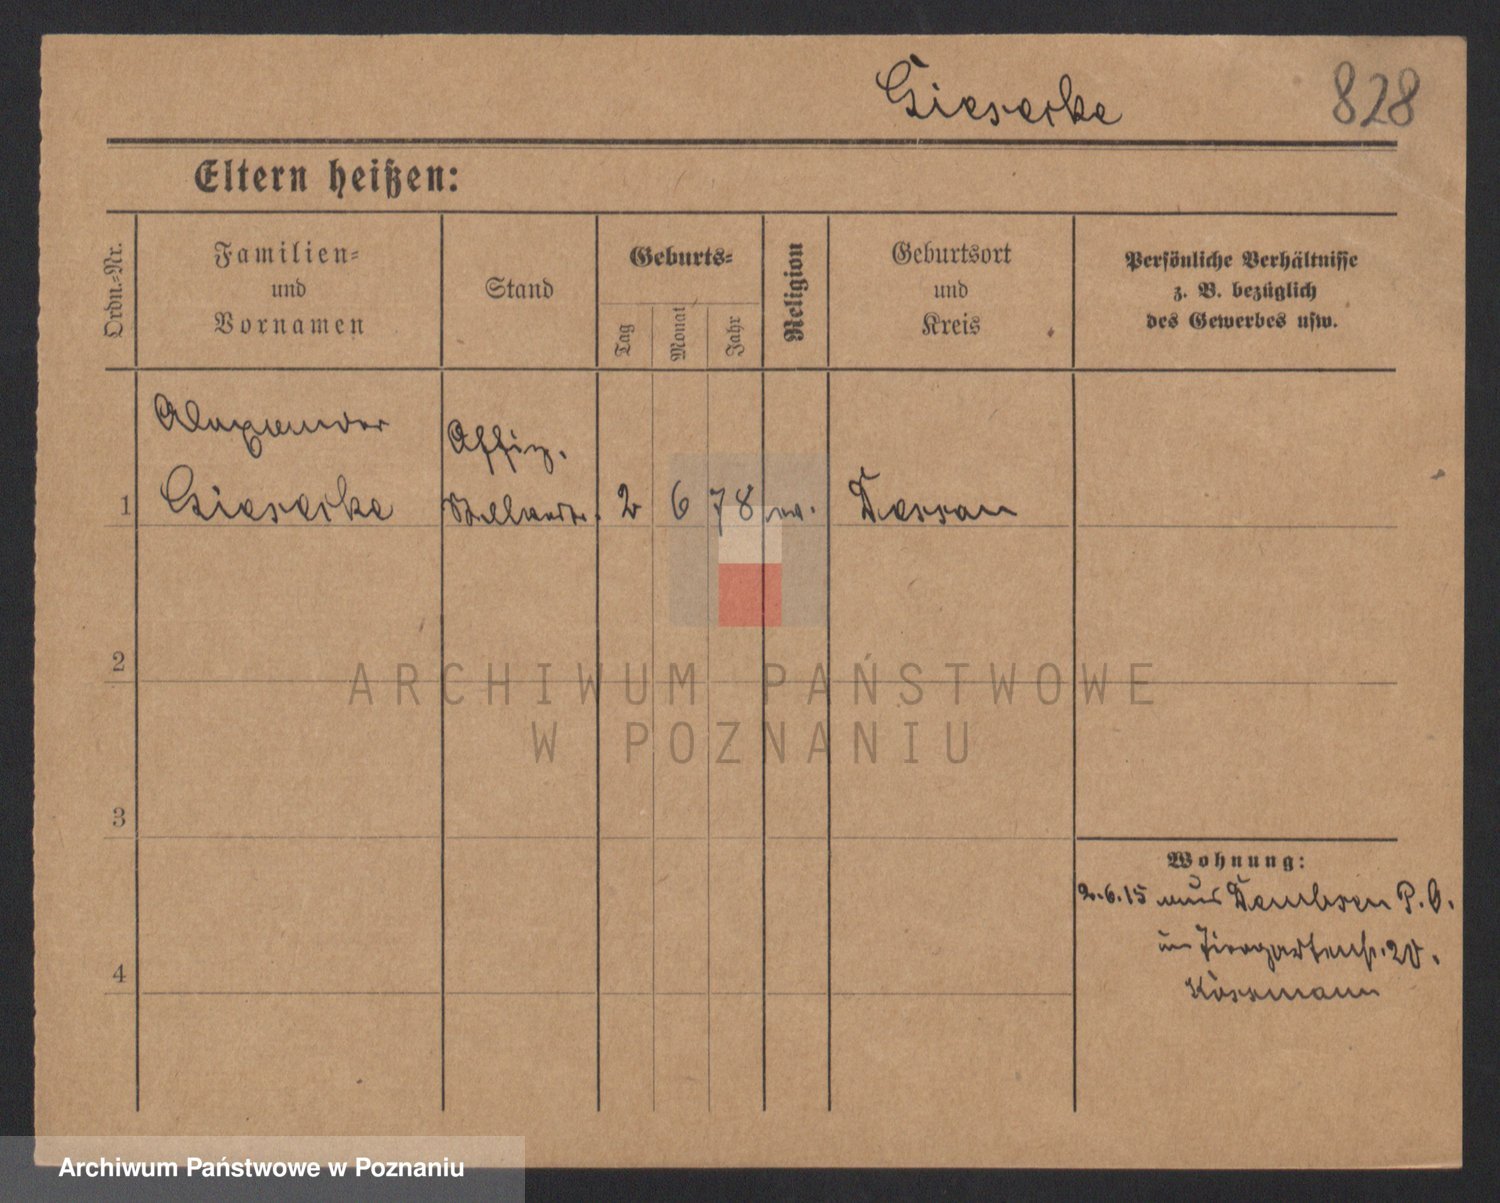 Gieserke
828
Eltern heißen:
Ordn.-Nr.
Familien-
und
Vornamen
Stand
Geburts-
Tag
Monat
Jahr
Religion
Geburtsort
und
Kreis
Persönliche Verhältnisse
z. B. bezüglich
des Gewerbes usw.
Alexander
Gieserke
Offiz.
Stellvertr.
1
2 6 78 ev.
Dessau
2
ARCHIWUM PAŃSTWOWE
W POZNANIU
3
Wohnung:
2.6.15 aus Dembsen P. O.
in Tiergartenstr. 20.
Kossmann
4
Archiwum Państwowe w Poznaniu